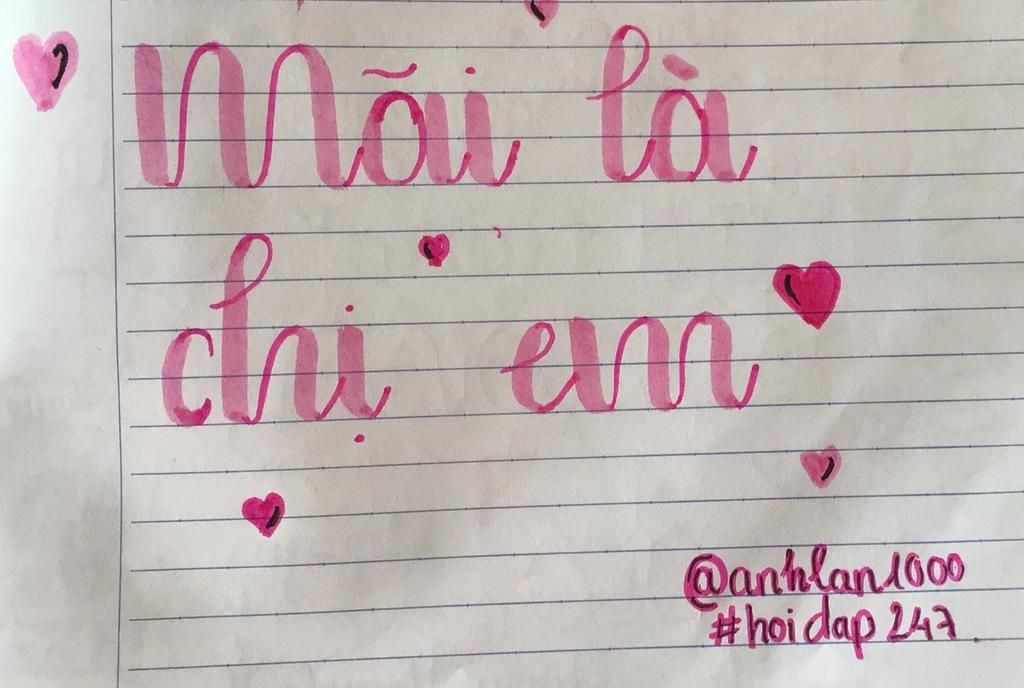 Mãi là
chị em
@anhlan1000
#hoidap247.